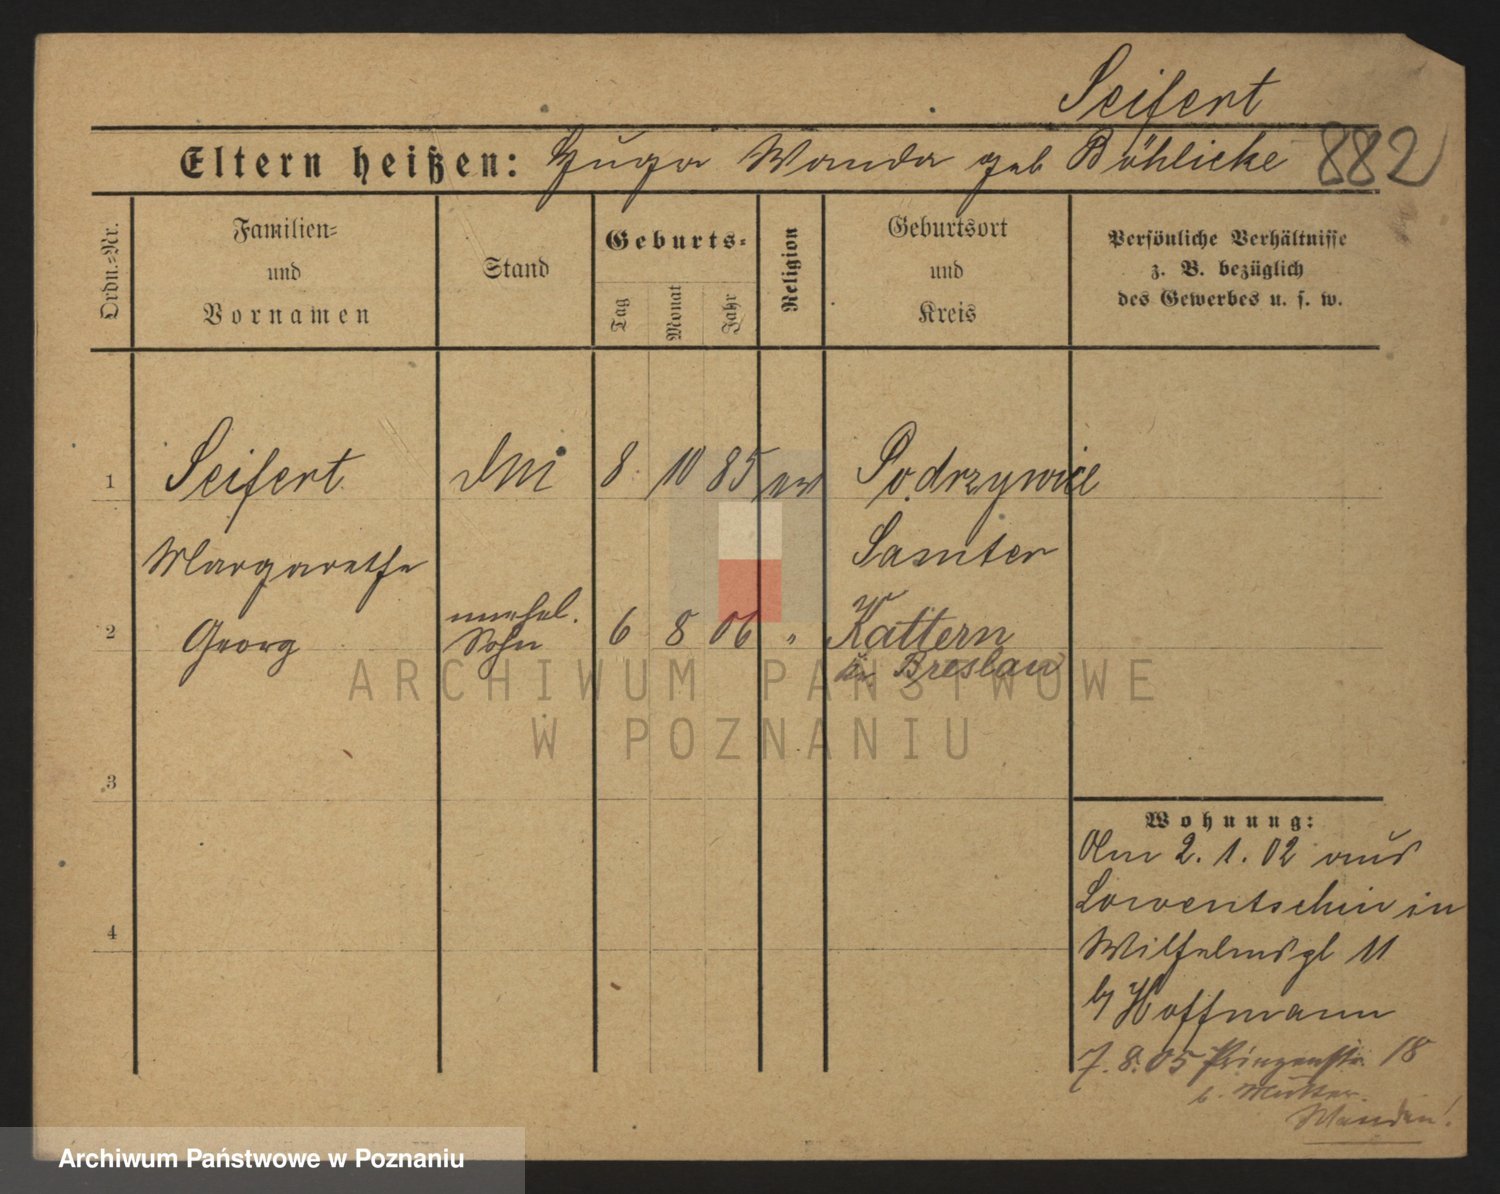 Seifert
Eltern heißen: Hugo Wanda geb Böhlicke 882
Ordn.=Nr.
Familien=
und
Vornamen
Stand
Geburts=
Tag
Monat
Jahr
Religion
Geburtsort
und
Kreis
Persönliche Verhältnisse
z. B. bezüglich
des Gewerbes u. s. w.
1 Seifert 8 10 85 ev Podrzywice
Margarethe Samter
2 Georg unehel. Sohn 6 8 06 " Kattern
Kr. Breslau
3
4
Wohnung:
Am 2.1.02 aus
Lowentschin in
Wilhelmspl 11
by Hoffmann
7.8.05 Prinzenstr. 18
b. Mutter
ARCHIWUM PAŃSTWOWE
W POZNANIU
Archiwum Państwowe w Poznaniu